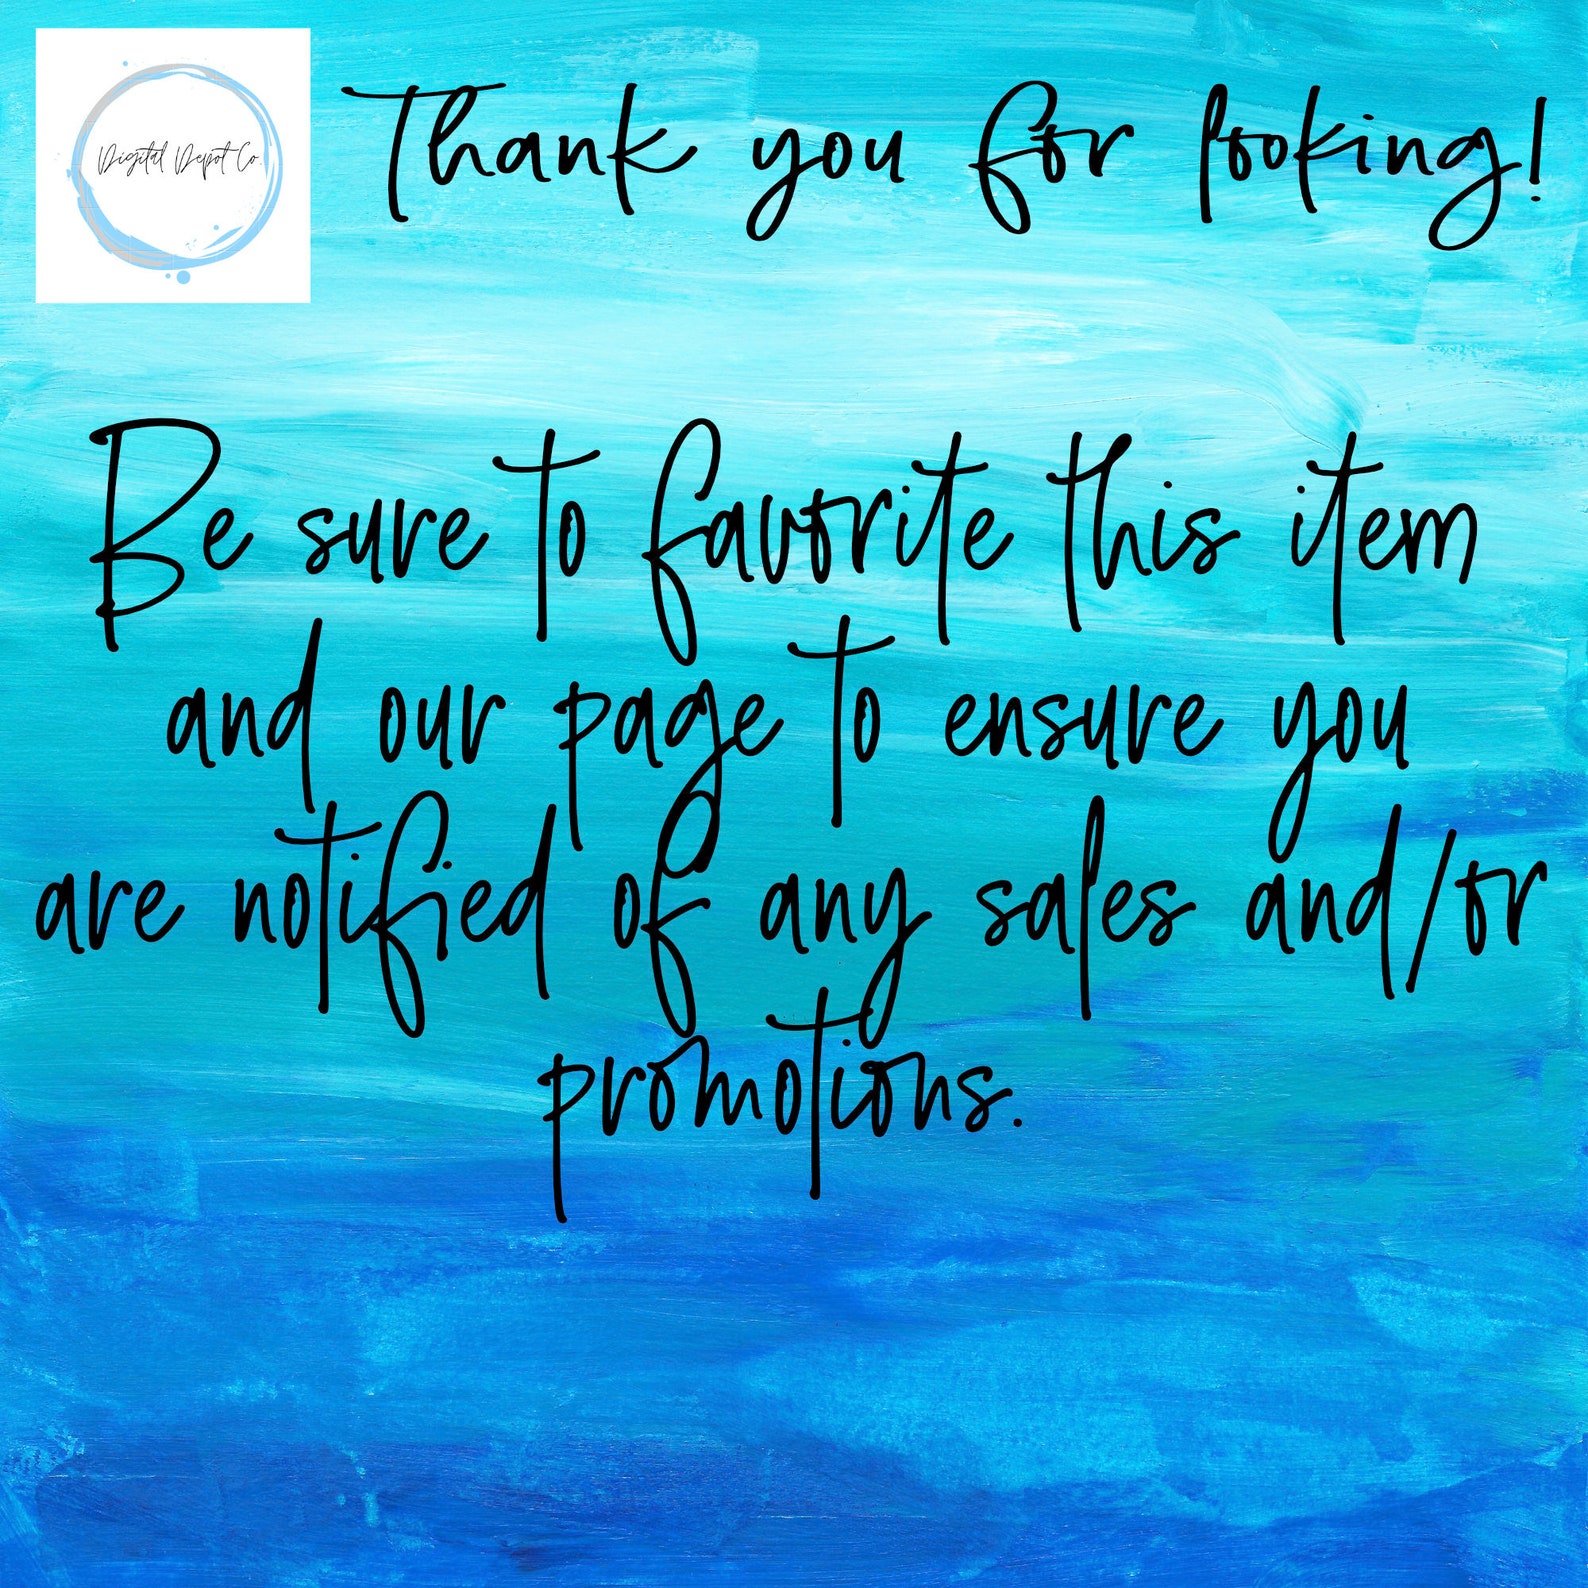 Digital Depot Co.
Thank you for looking!
Be sure to favorite this item
and our page to ensure you
are notified of any sales and/or
promotions.